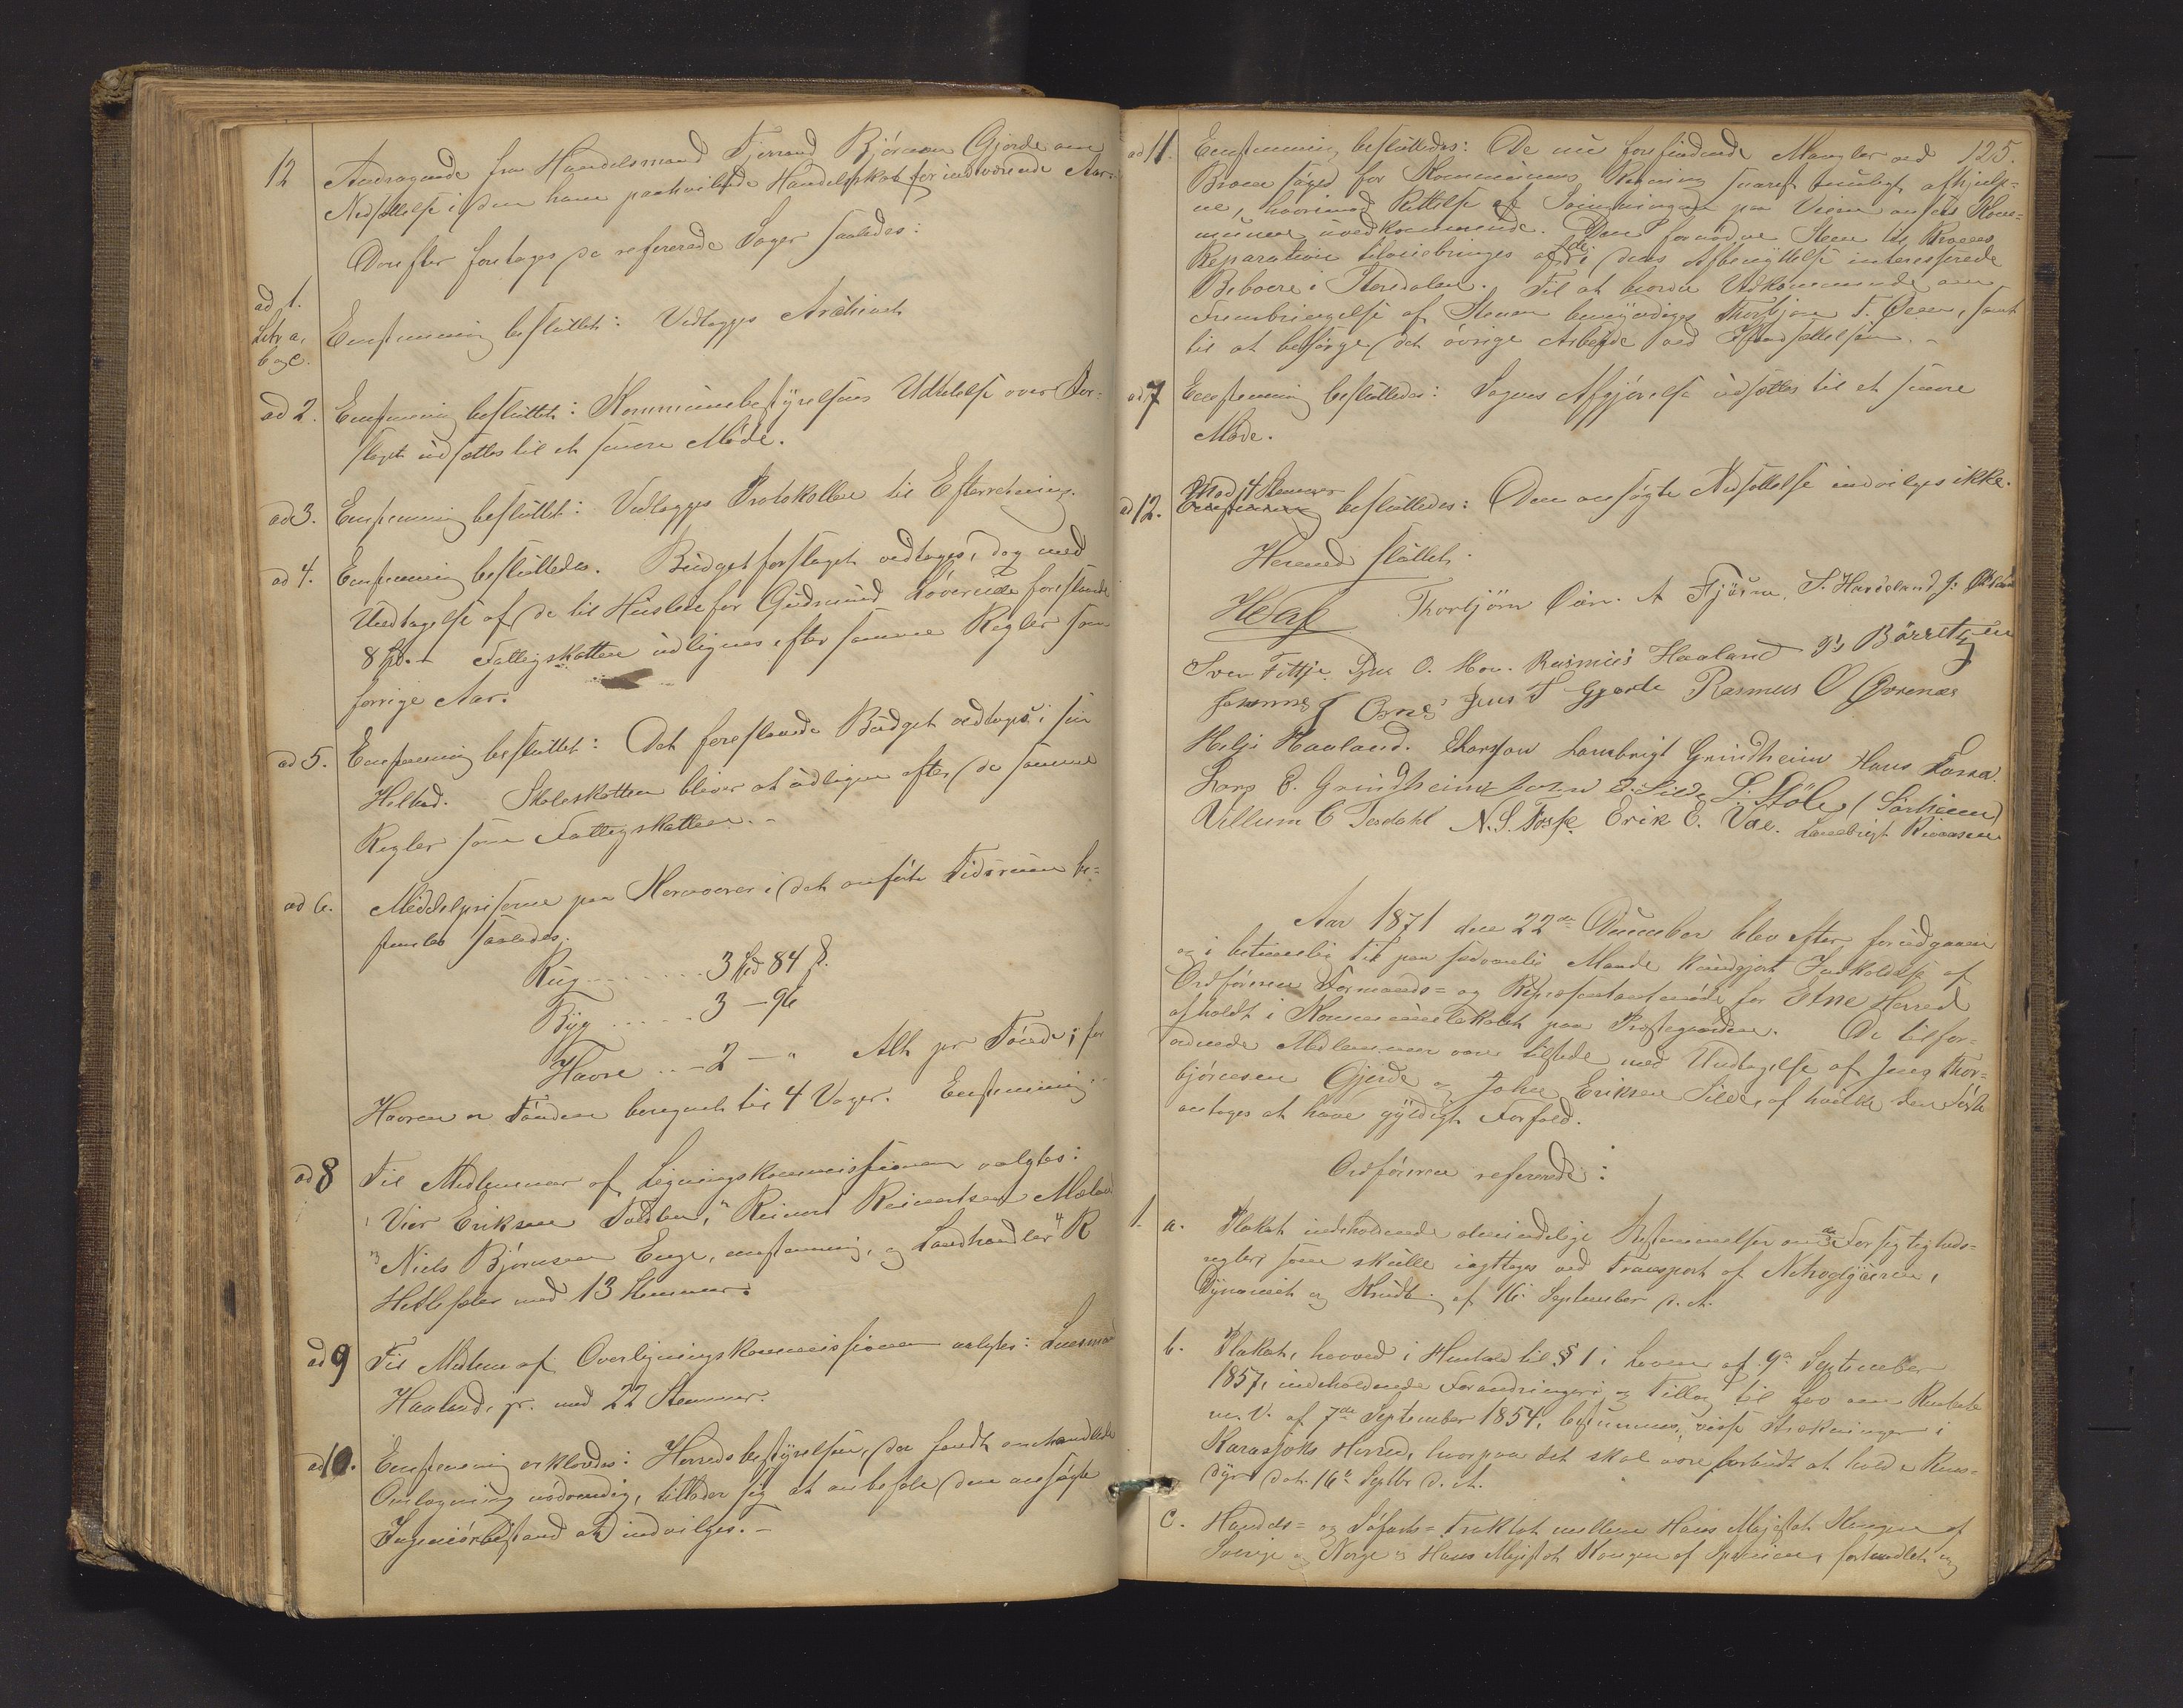 12 Andragende fra Handelsmand Tjerrand Bjørnsen Gjerde om
Nedsættelse i den ham paahvilende Handelsskat for indeværende Aar.
Derefter foretoges de refererede Sager saaledes:
ad 1.
Litr a, Eenstemmig besluttet: Vedlægges Archivet
b og c.
ad 2. Eenstemmig besluttet: Kommunebestyrelsens Udtalelse over For-
slaget udsættes til et senere Møde.
ad 3. Eenstemmig besluttet: Vedlægges Protokollen til Efterretning.
ad 4. Eenstemmig besluttedes. Budgetforslaget vedtages, dog med
Undtagelse af de til Husleie for Gudmund foreslaaede
8 Spd. - Fattigskatten udlignes efter samme Regler som
forrige Aar.
ad 5. Eenstemmig besluttet: Det foreslaaede Budget vedtages i sin
Helhed. Skoleskatten bliver at udligne efter de samme
Regler som Fattigskatten. -
ad 6. Middelpriserne paa Kornvarer i det anførte Tidsrum be-
stemtes saaledes.
Rug ........ 3 Spd 84 ß.
Byg ...... 3 — 96
Havre .. - 2 — " Alt pr Tønde; for
Havren er Tønden beregnet til 4 Voger. Eenstemmig. -
ad 8 Til Medlemmer af Ligningskommissionen valgtes:
1 Vier Eriksen 2 Reinert Reinertsen
3 Niels Bjørnsen Enge, eenstemmig, og Landhandler 4 R
med 13 Stemmer.
ad 9 Til Medlem af Overligningskommissionen valgtes: Lensmand
Haaland, jr. med 22 Stemmer.
ad 10. Eenstemmig erklæredes: Herredsbestyrelsen, der fandt omhandlede
Omlægning nødvendig, tillader sig at anbefale den ansøgte
Ingeniørbistand at indvilges. -
ad 11. Eenstemmig besluttedes: De nu forefindende Mangler ved 125.
Broen søges for Kommunens Regning snarest muligt afhjulp-
ne, hvorimod Rettelse af Svingningen paa Veien ansees Kom-
munen uvedkommende. Den fornødne Steen til Broens
Reparation tilveiebringes af de i dens Afbenyttelse interesserede
Beboere i Stordalen. Til at beordre Vedkommende om
Frembringelse af Stenen bemyndiges Thorbjørn T. Øien, samt
til at besørge det øvrige Arbeide ved Istandsættelsen. -
ad 7 Eenstemmig besluttedes: Sagens Afgjørelse udsættes til et senere
Møde.
Mod 4 Stemmer
ad 12. Eenstemmig besluttedes: Den ansøgte Nedsættelse indvilges ikke.
Hermed sluttet.
Thorbjørn Øien. A Fjøsne, S. Handeland
Sven Fitje O. Mo. Rasmus Haaland Børretzen
Johannes J Ones Jens T Gjerde Rasmus O
Helje Haaland. Lambrigt Grindheim Hans
Lars E. Grindheim John E. Silde S. Støle (Sørheim)
Villum C N. S. Fosse. Erik E. Vae. Lambrigt
Aar 1871 den 22de December blev efter forudgaaen
og i betimelig Tid paa sædvanlig Maade kundgjort Indkaldelse af
Ordføreren Formands= og Repræsentantmøde for Etne Herred
afholdt i Kommunelokalet paa Præstegaarden. De tilfor-
ordnede Medlemmer vare tilstede med Undtagelse af Jens Thor-
bjørnsen Gjerde og John Eriksen Silde, af hvilke den første
antages at have gyldigt Forfald.
Ordføreren refererede:
1. a. Plakat indeholdende almindelige Bestemmelser om de Forsigtigheds-
regler, som skulle iagttages ved Transport af Nitroglycerin,
Dynamit og Krudt af 16. September d. A.
b. Plakat, hvorved i Henhold til § 1 i Loven af 9de September
1857, indeholdende Forandringer i og Tillæg til Lov om Rentebe
m. V. af 7de September 1854, bestemmes visse Strækninger i
Karasjoks Herred, hvorpaa det skal være forbudt at holde Rens-
dyr, dat. 16de Septbr d. A.
c. Handels= og Søfarts= Traktat mellem Hans Majestæt Kongen af
Sverige og Norge og Hans Majestæt Kongen af Spanien, forhandlet og